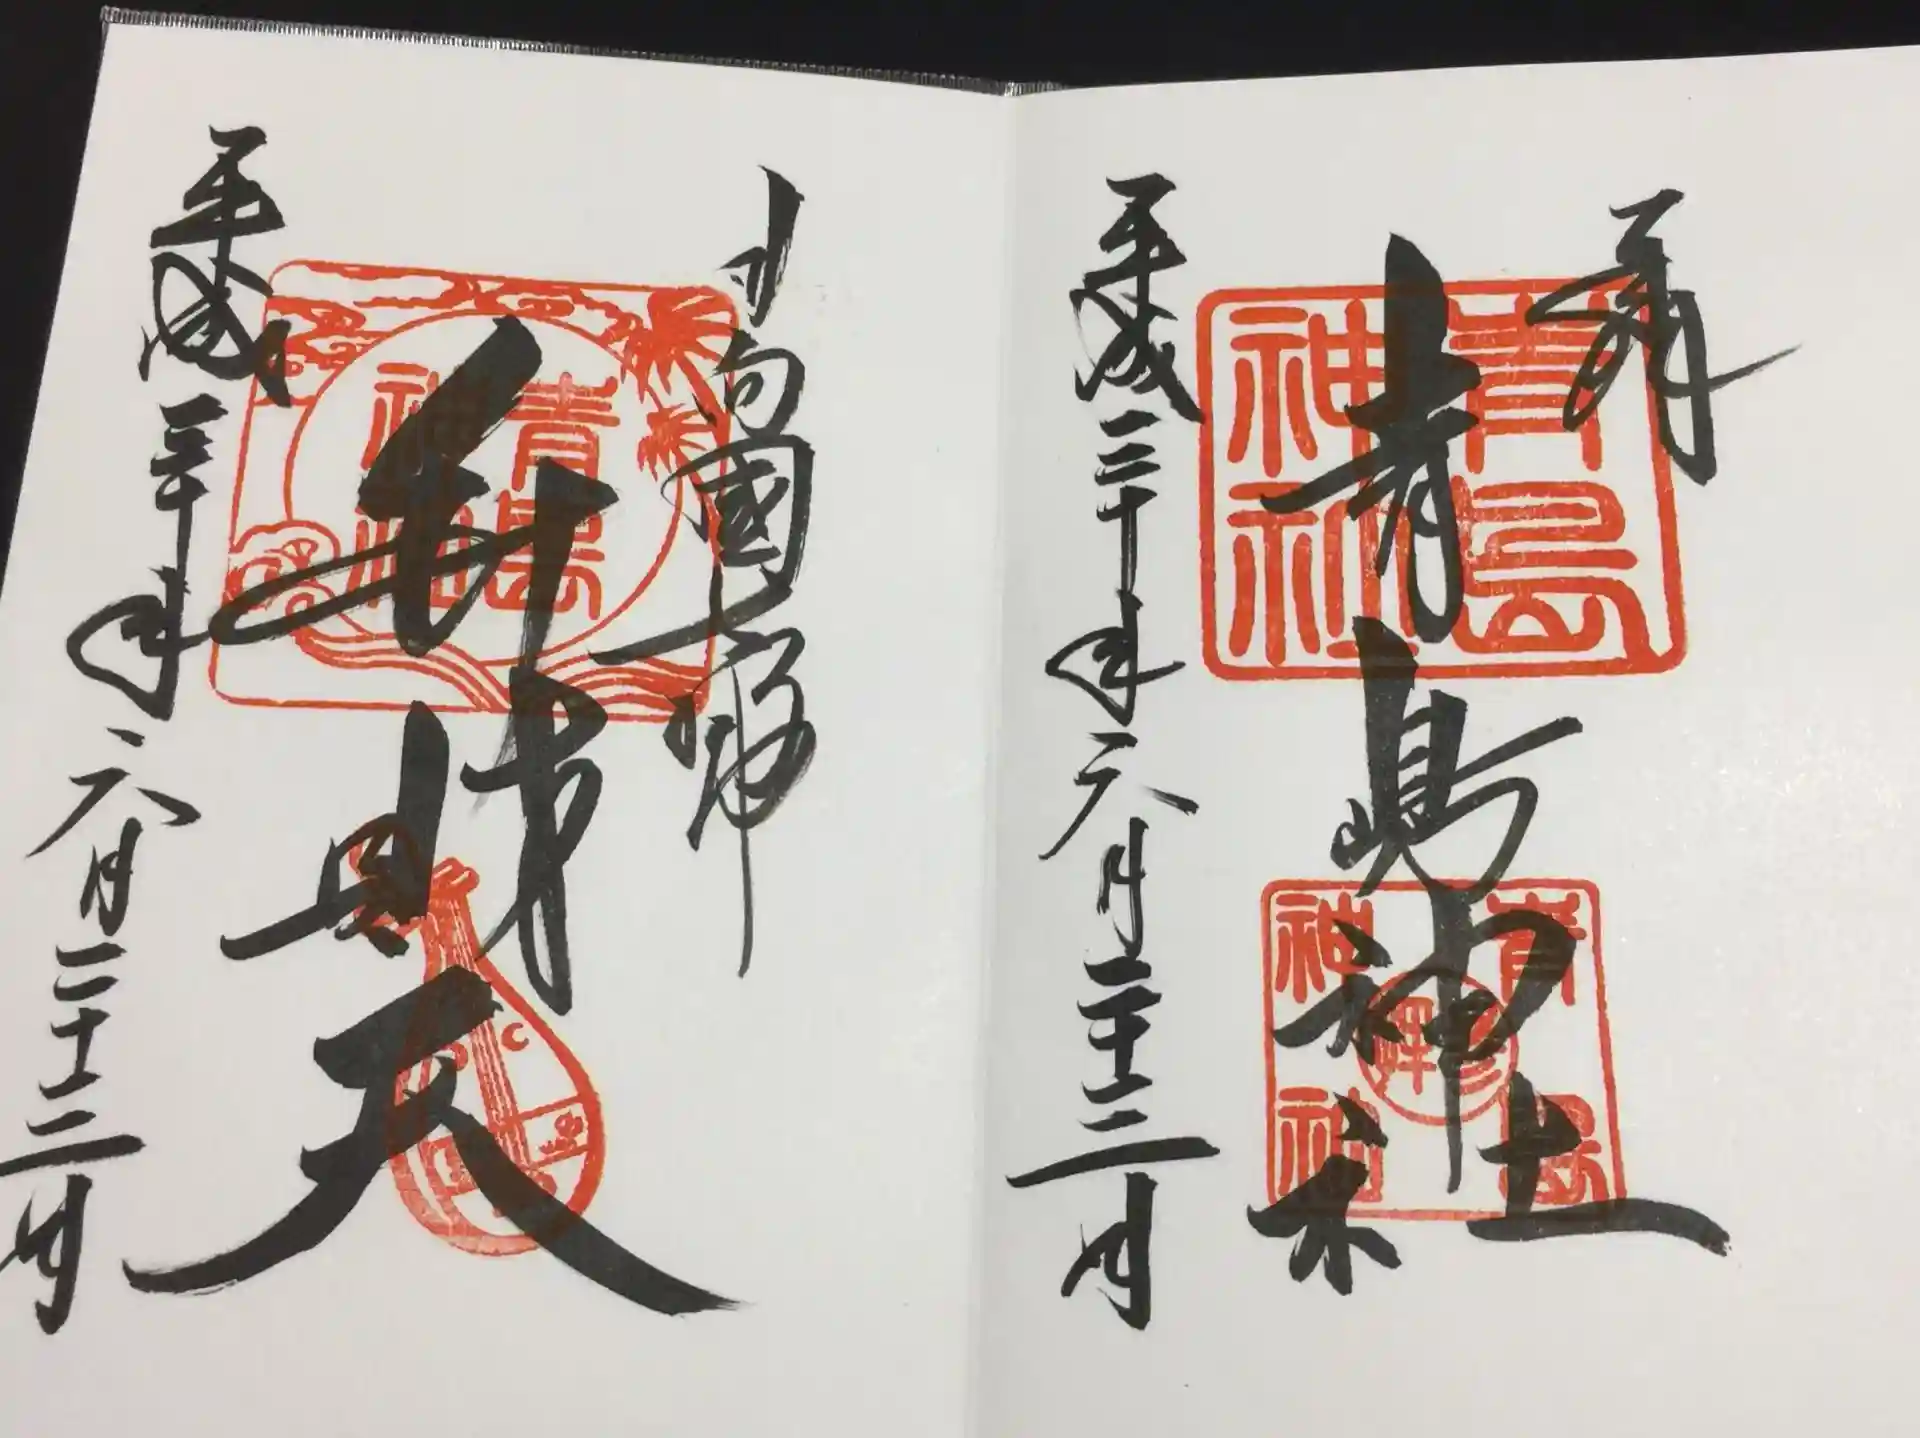 奉拝
青島神社
平成三十年六月二十三日
青島神社
青島神社
日向國七福神
弁財天
平成三十年六月二十三日
青島神社